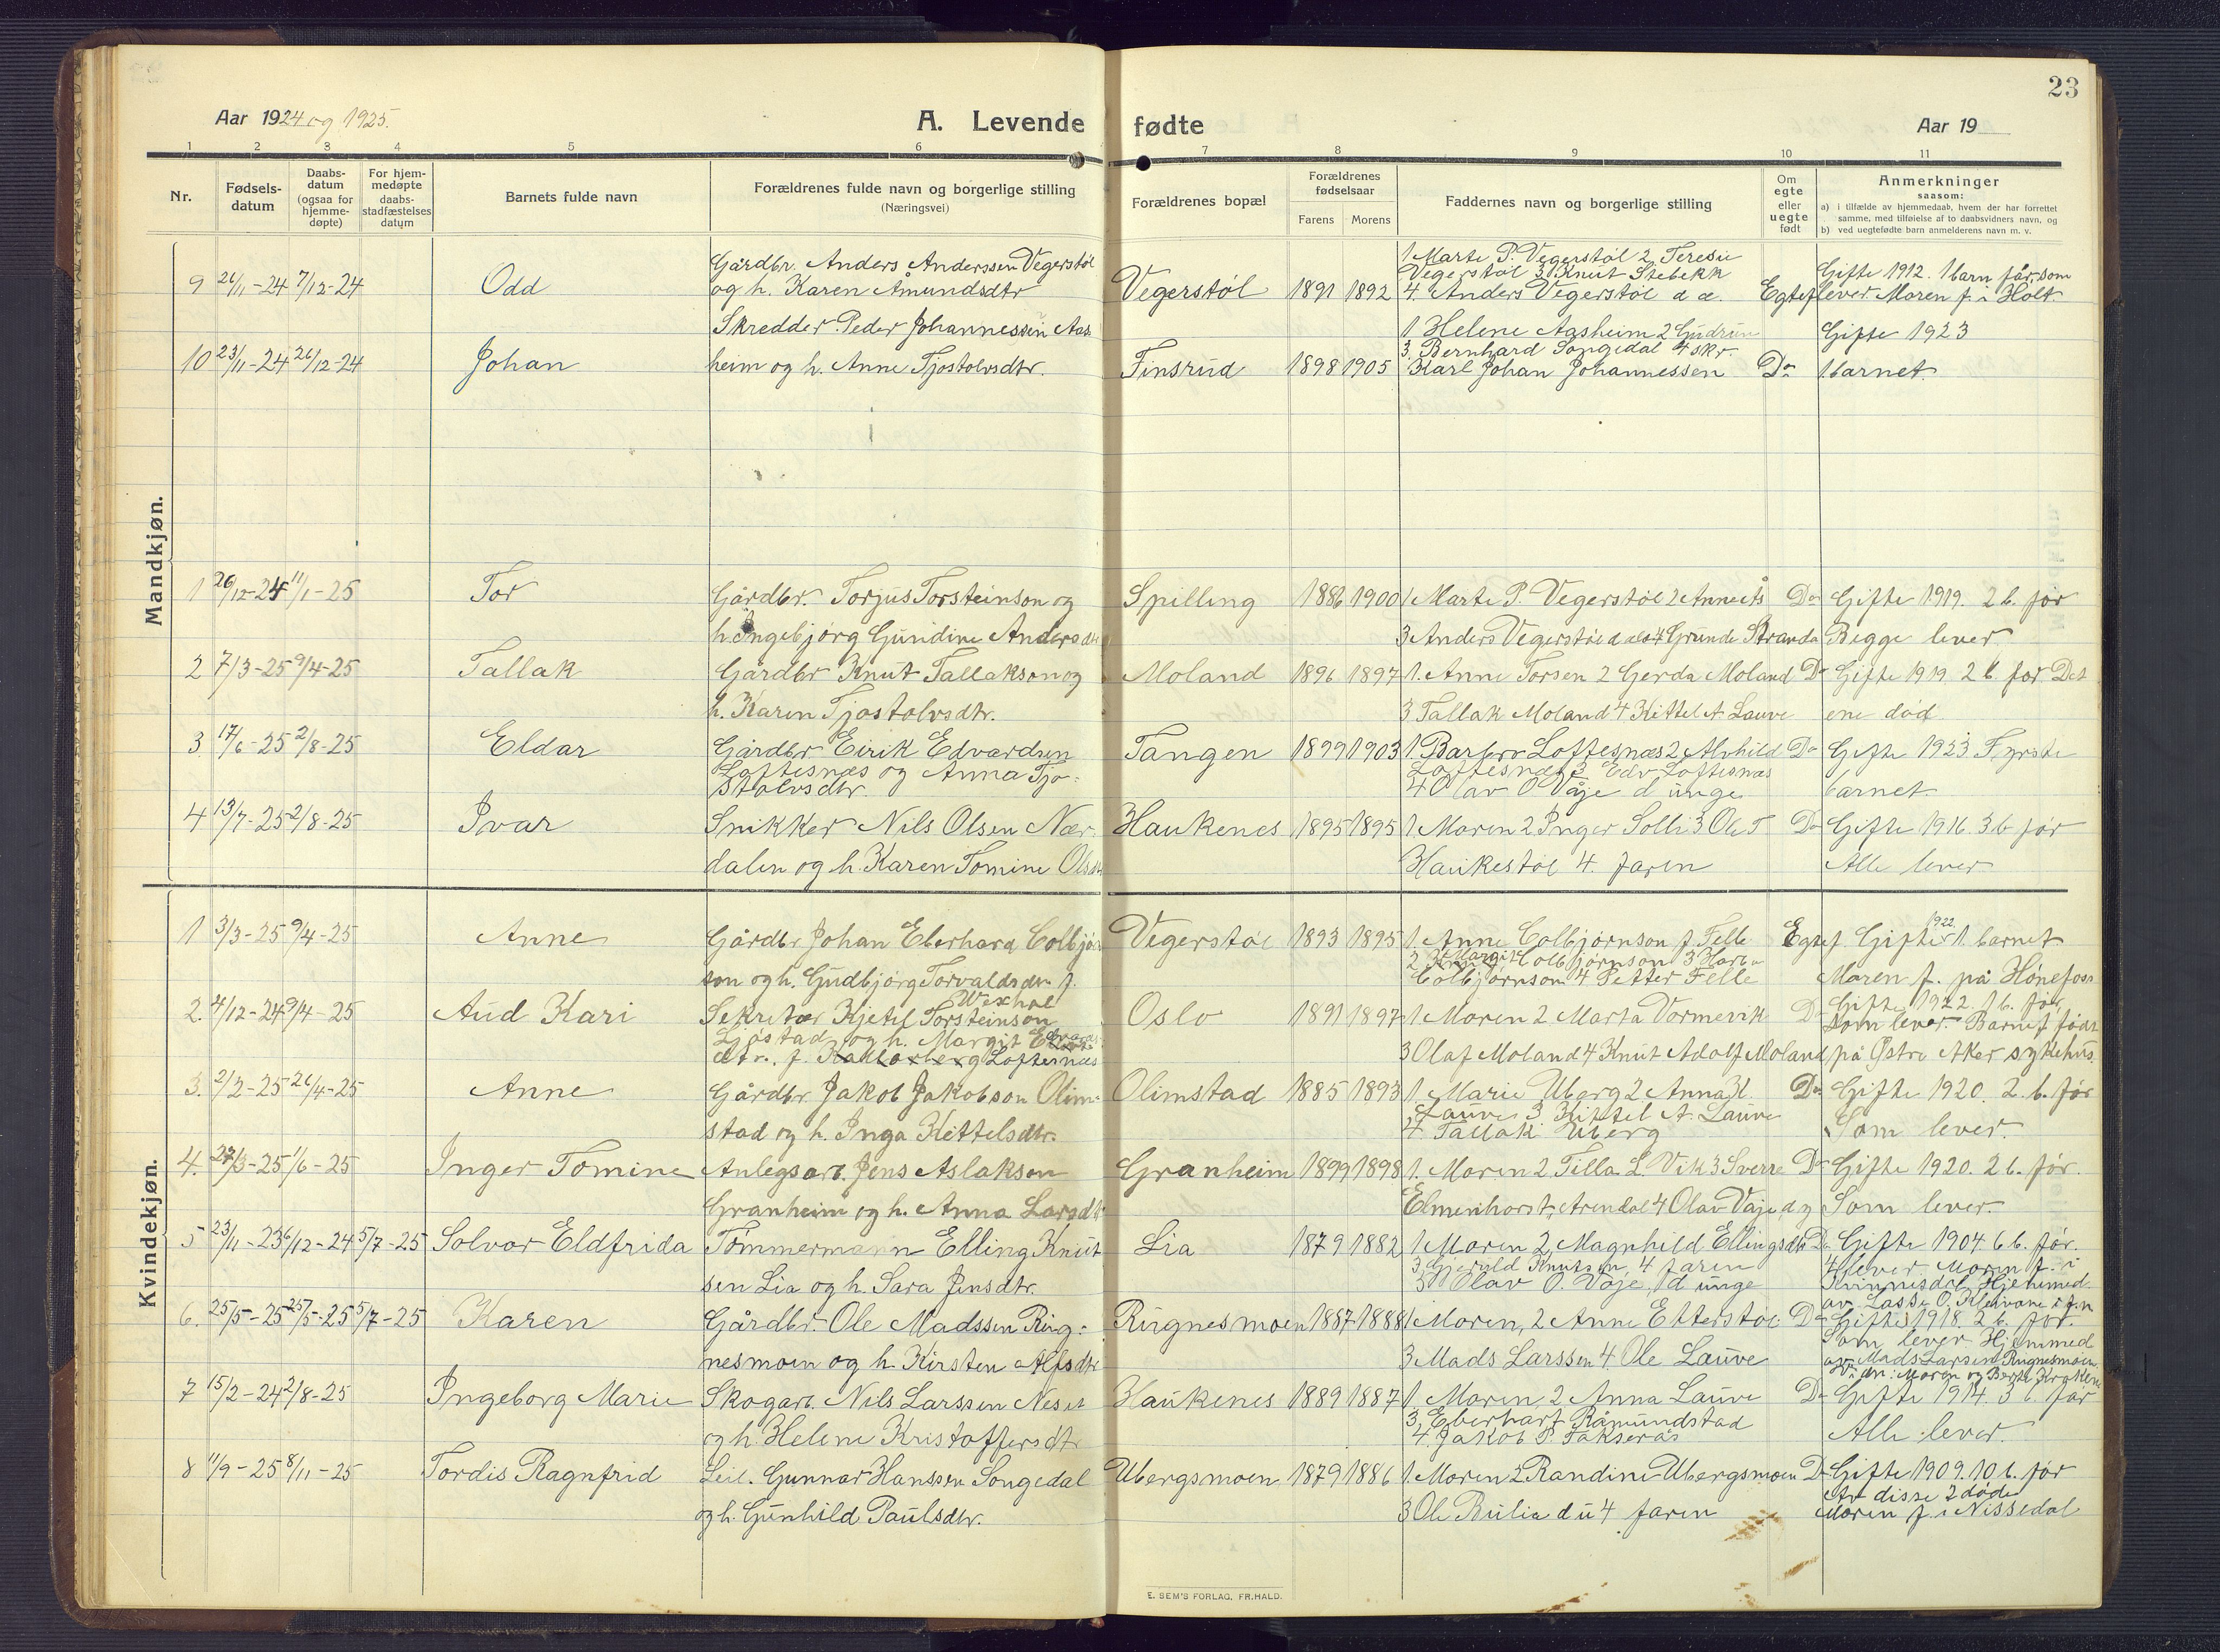 23
Aar 1924 og 1925.
A. Levende fødte
Aar 19
1 2 3 4 5 6 7 8 9 10 11
Nr.
Fødsels-
datum
Daabs-
datum
(ogsaa for
hjemme-
døpte)
For hjem-
medøpte
daabs-
stadfæstelses
datum
Barnets fulde navn
Forældrenes fulde navn og borgerlige stilling
(Næringsvei)
Forældrenes bopæl
Forældrenes
fødselsaar
Farens Morens
Faddernes navn og borgerlige stilling
Om
egte
eller
uegte
født
Anmerkninger
saasom:
a) i tilfælde av hjemmedaab, hvem der har forrettet
samme, med tilføielse af to daabsvidners navn, og
b) ved uegtefødte barn anmelderens navn m. v.
Mandkjøn.
9 24/11-24 7/12-24 Odd
Gårdbr. Anders Anderssen Vegerstøl
og h. Karen Åmundsdtr
Vegerstøl 1891 1892
1 Marte P. Vegerstøl 2 Teresie
Vegerstøl 3 Knut Stebekk
4. Anders Vegerstøl d æ.
Egtef
Gifte 1912. 1 barn før, som
lever Moren f. i Holt
10 23/11-24 26/12-24 Johan
Skredder Peder Johannessen Aas
heim og h. Anne Tjostolvsdtr.
Finsrud 1898 1905
1. Helene Aasheim 2 Gudrun
3. Bernhard Songedal 4 skr.
Karl Johan Johannessen
Do
Gifte 1923
1 barnet.
1 26/12-24 11/1-25 Tor
Gårdbr. Torjus Torsteinson og
h. Ingebjørg Gundine Andersdtr
Spilling 1886 1900
1 Marte P. Vegerstøl 2 Anne
3 Anders Vegerstøl d 4 Grunde Stranda
Do
Gifte 1919. 2 b. før
Begge lever.
2 7/3-25 9/4-25 Tallak
Gårdbr Knut Tallakson og
h. Karen Tjostolvsdtr.
Moland 1896 1897
1. Anne Torsen 2 Gerda Moland
3 Tallak Moland 4 Kittel A Lauve
Do
Gifte 1919 2 b. før Det
ene død
3. 17/6-25 2/8-25 Eldar
Gårdbr Eirik Edvardsen
Loftesnæs og Anna Tjo-
stolvsdtr.
Tangen 1899 1903
1. Barbro Loftesnæs 2 Alvhild
Loftesnæs 3 Edv. Loftesnæs
4 Olav O Våje d unge
Do
Gifte 1923 Fyrste
barnet.
4 13/7-25 2/8-25 Ivar
Snikker Nils Olsen Nær-
dalen og h. Karen Tomine Olsdtr
Haukenes 1895 1895
1. Moren 2 Inger Solli 3 Ole T
Haukestøl 4. faren
Do
Gifte 1916. 3 b før
Alle lever
Kvindekjøn.
1 3/3-25 9/4-25 Anne
Gårdbr Johan Eberhard Colbjørn
son og h. Gudbjørg Torvaldsdtr f.
Vegerstøl 1893 1895
1. Anne Colbjørnson f. Felle
2 Margit Colbjørnson 3
Colbjørnson 4 Petter Felle
Egtef
1922
Gifte 1. barnet
Moren f. på Hønefoss
2. 4/12-24 9/4-25 Aud Kari
Wexhal
Sekretær Kjetil Torsteinson
Ljøstad og h. Margit Edvards
dtr. f. Loftesnæs
Oslo 1891 1897
1. Moren 2 Marta Vormevik
3 Olaf Moland 4 Knut Adolf Moland
Do
Gifte 1922. 1 b. før
som lever. Barnet født
på Østre Aker sykehus.
3. 2/2-25 26/4-25 Anne
Gårdbr Jakob Jakobson Olim-
stad og h. Inga Kittelsdtr.
Olimstad 1885 1893
1. Marie Uberg 2 Anna K.
Lauve 3 Kittel A. Lauve
4 Tallak Uberg
Do
Gifte 1920. 2. b. før
Som lever.
4. 27/3-25 1/6-25 Inger Tomine
Anlegsarb. Jens Aslakson
Granheim og h. Anna Larsdtr
Granheim 1899 1898
1. Moren 2 Tilla L. Vik 3 Sverre
Elmenhorst, Arendal 4 Olav Vaje, d y
Do
Gifte 1920. 2 b. før.
Som lever.
5 23/11-23 6/12-24 5/7-25 Solvor Eldfrida
Tømmermann Elling Knut
sen Lia og h. Sara Jensdtr.
Lia 1879 1882
1 Moren 2, Magnhild Ellingsdtr
3 Gjerulf Knutsen, 4 faren
5 Olav O. Våje, d unge
Do
Gifte 1904. 6 b. før.
4 lever. Moren f. i
Kvinnesdal Hjemmed
av Lasse O. Kleivane
6. 25/5-25 25/5-25 5/7-25 Karen
Gårdbr. Ole Madssen Ring-
nesmoen og h. Kirsten Alfsdtr
Ringnesmoen 1887 1888
1 Moren, 2 Anne Etterstøl
3 Mads Larssen 4. Ole Lauve
Do
Gifte 1918. 2 b. før.
Som lever Hjemmed
av Mads Larsen Ringnesmoen.
Moren og Berte
7 15/2-24 2/8-25 Ingeborg Marie
Skogarb. Nils Larssen Neset
og h. Helene Kristoffersdtr
Haukenes 1889 1887
1. Moren, 2 Anna Lauve
3, Eberhart Råmundstad
4. Jakob P. Takserås
Do
Gifte 1914. 3 b. før
Alle lever.
8 11/9-25 8/11-25 Tordis Ragnfrid
Leil. Gunnar Hanssen Songedal
og h. Gunhild Paulsdtr.
Ubergsmoen 1879 1886
1. Moren 2 Randine Ubergsmoen
3 Ole Rulia d u 4 faren
Do
Gifte 1909. 10 b. før
Av disse 2 døde
Moren f. i Nissedal
E. SEM'S FORLAG, FR.HALD.